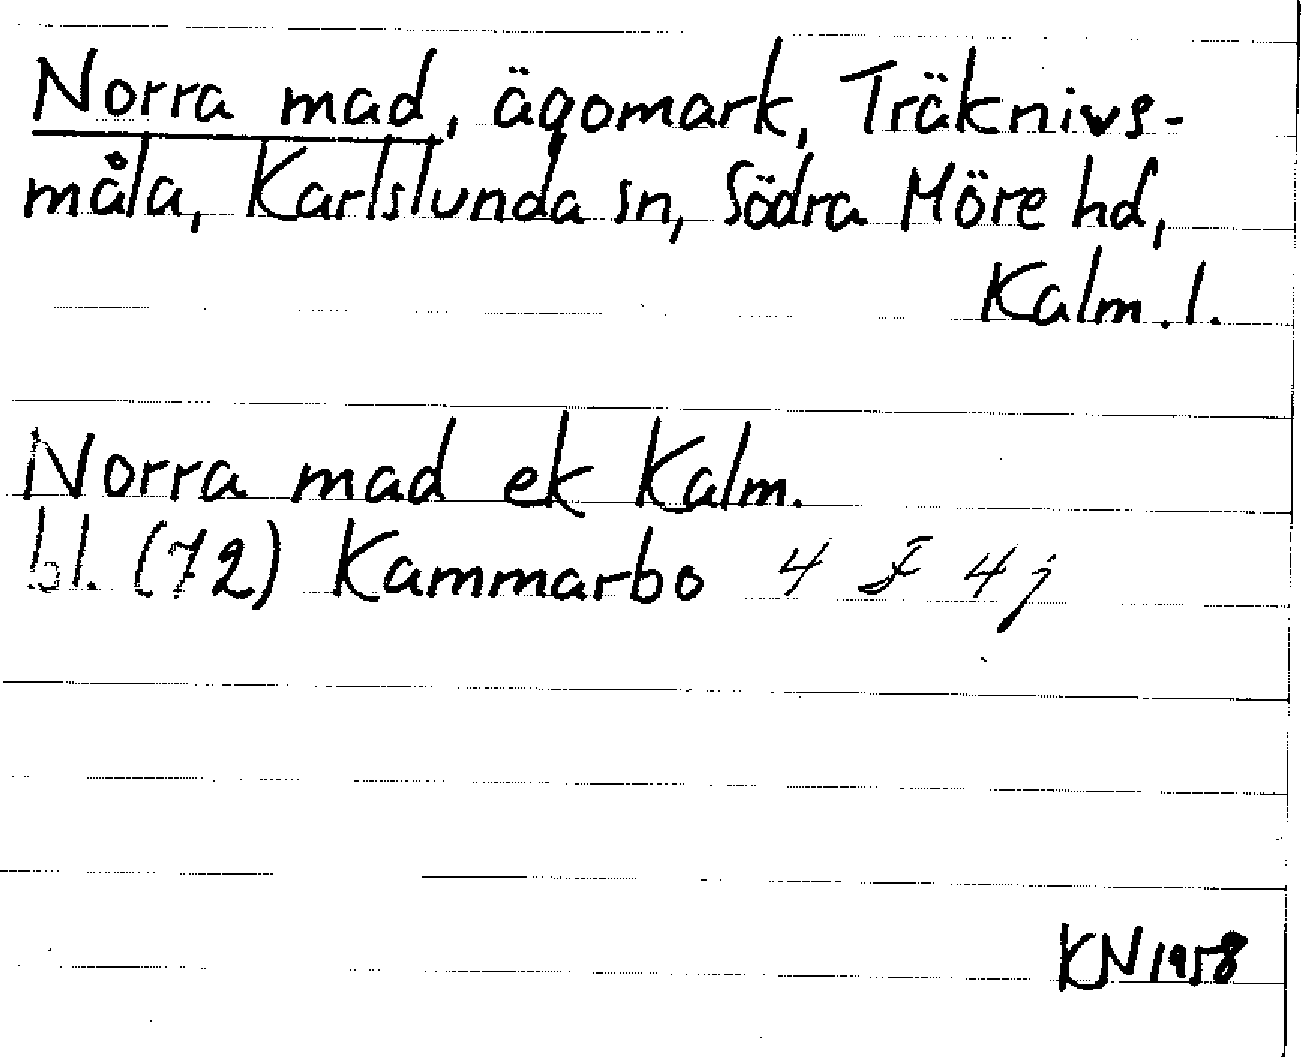 Norra mad, ägomark, Träknivs-
måla, Karlslunda sn, Södra Möre hd,
Kalm. l.
Norra mad ek Kalm.
bl. (72) Kammarbo 4 F 4 j
KN 1958